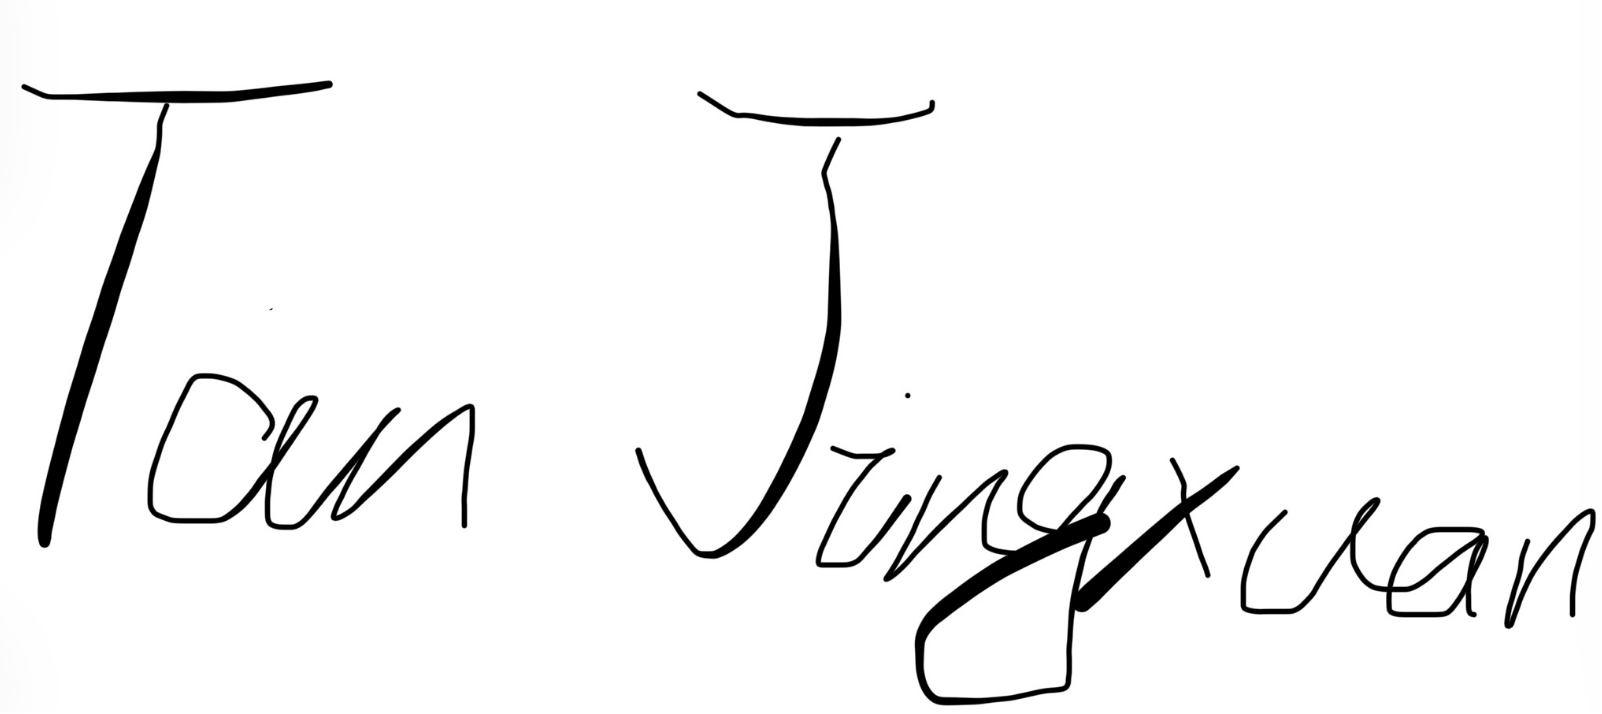 Tan Jingxuan